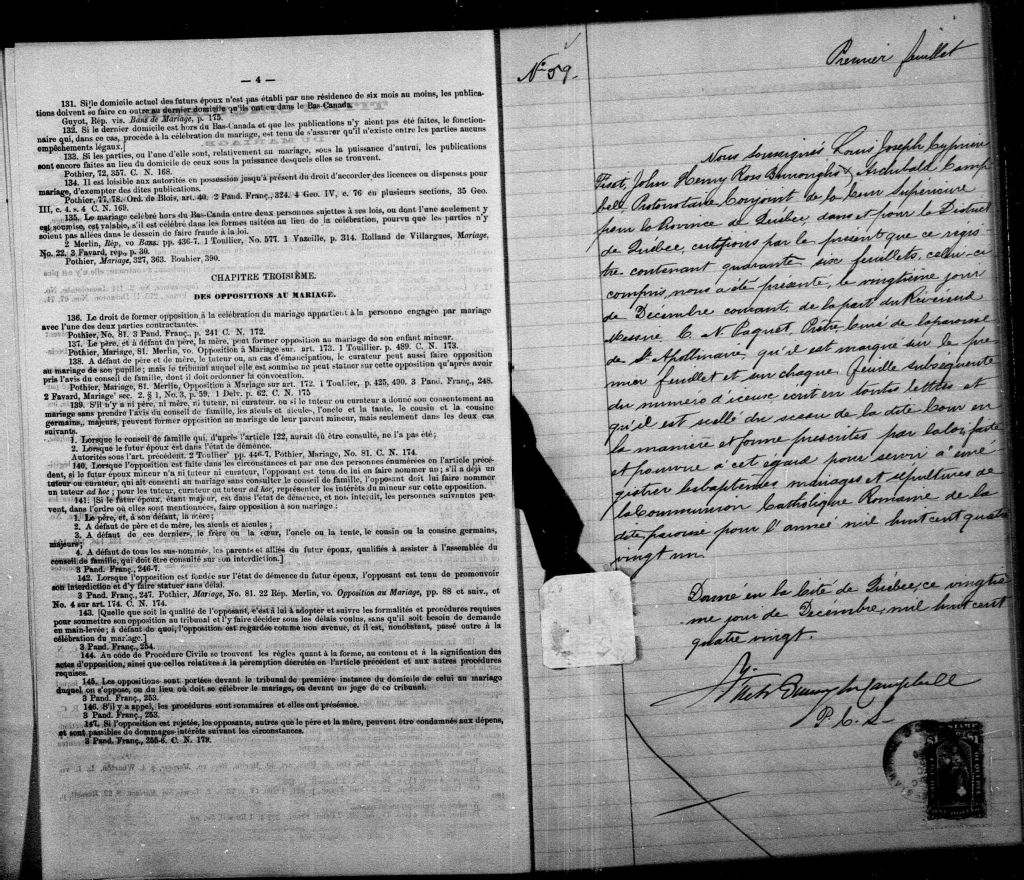 — 4 —
131. Si le domicile actuel des futurs époux n'est pas établi par une résidence de six mois au moins, les publica-
tions doivent se faire en outre au dernier domicile qu'ils ont eu dans le Bas-Canada.
Guyot, Rép. vis. Bans de Mariage, p. 175.
132. Si le dernier domicile est hors du Bas-Canada et que les publications n'y aient pas été faites, le fonction-
naire qui, dans ce cas, procède à la célébration du mariage, est tenu de s'assurer qu'il n'existe entre les parties aucuns
empêchements légaux.]
133. Si les parties, ou l'une d'elles, sont, relativement au mariage, sous la puissance d'autrui, les publications
sont encore faites au lieu du domicile de ceux sous la puissance desquels elles se trouvent.
Pothier, 72, 357. C. N. 168.
134. Il est loisible aux autorités en possession jusqu'à présent du droit d'accorder des licences ou dispenses pour
mariage, d'exempter des dites publications.
Pothier, 77, 78. Ord. de Blois, art. 40. 2 Pand. Franç., 324. 4 Geo. IV, c. 76 en plusieurs sections, 35 Geo.
III, c. 4. s. 4 C. N. 169.
135. Le mariage célébré hors du Bas-Canda entre deux personnes sujettes à ses lois, ou dont l'une seulement y
est soumise, est valable, s'il est célébré dans les formes usitées au lieu de la célébration, pourvu que les parties n'y
soient pas allées dans le dessein de faire fraude à la loi.
2 Merlin, Rép, vo Bans. pp. 436-7. 1 Toullier, No. 577. 1 Vazeille, p. 314. Rolland de Villargues, Mariage,
No. 22. 3 Favard, rep., p. 30.
Pothier, Mariage, 327, 363. Bouhier, 390.
CHAPITRE TROISIÈME.
DES OPPOSITIONS AU MARIAGE.
136. Le droit de former opposition à la célébration du mariage appartient à la personne engagée par mariage
avec l'une des deux parties contractantes.
Pothier, No. 81. 3 Pand. Franç., p. 241 C. N. 172.
137. Le père, et à défaut du père, la mère, peut former opposition au mariage de son enfant mineur.
Pothier, Mariage, 81. Merlin, vo. Opposition à Mariage sur art. 173. 1 Toullier p. 489. C. N. 173.
138. A défaut de père et de mère, le tuteur ou, au cas d'émancipation, le curateur peut aussi faire opposition
au mariage de son pupille; mais le tribunal auquel est soumise ne peut statuer sur cette opposition qu'après avoir
pris l'avis du conseil de famille, dont il doit ordonner la convocation.
Pothier, Mariage, 81. Merlin, Opposition à Mariage sur art. 172. 1 Toullier, p. 425, 490. 3 Pand. Franç., 248.
2 Favard, Mariage' sec. 2. § 1, No. 3, p. 59. 1 Delv. p. 62. C. N. 175
139. S'il n'y a ni père, ni mère, ni tuteur, ni curateur, ou si le tuteur ou curateur a donné son consentement au
mariage sans prendre l'avis du conseil de famille, les aïeuls et aïeules, l'oncle et la tante, le cousin et la cousine
germains, majeurs, peuvent former opposition au mariage de leur parent mineur, mais seulement dans les deux cas
suivants.
1. Lorsque le conseil de famille qui, d'après l'article 122, aurait dû être consulté, ne l'a pas été;
2. Lorsque le futur époux est dans l'état de démence.
Autorités sous l'art. précédent. 2 Toullier pp. 446-7. Pothier, Mariage, No. 81. C. N. 174.
140. Lorsque l'opposition est faite dans les circonstances et par une des personnes énumérées en l'article précé-
dent, si le futur époux mineur n'a ni tuteur ni curateur, l'opposant est tenu de lui en faire nommer un; s'il a déjà un
tuteur ou curateur, qui ait consenti au mariage sans consulter le conseil de famille, l'opposant doit lui faire nommer
un tuteur ad hoc; pour les tuteur, curateur ou tuteur ad hoc, représenter les intérêts du mineur sur cette opposition.
141. [Si le futur époux, étant majeur, est dans l'état de démence, et non interdit, les personnes suivantes peu-
vent, dans l'ordre où elles sont mentionnées, faire opposition à son mariage:
1. Le père, et, à son défaut, la mère;
2. A défaut de père et de mère, les aïeuls et aïeules;
3. A défaut de ces derniers, le frère ou la sœur, l'oncle ou la tente, le cousin ou la cousine germains,
majeurs;
4. A défaut de tous les sus-nommés, les parents et alliés du futur époux, qualifiés à assister à l'assemblée du
conseil de famille, qui doit être consulté sur son interdiction.]
3 Pand. Franç., 246-7.
142. Lorsque l'opposition est fondée sur l'état de démence du futur époux, l'opposant est tenu de promouvoir
son interdiction et d'y faire statuer sans délai.
3 Pand. Franç., 247. Pothier, Mariage, No. 81. 22 Rép. Merlin, vo. Opposition au Mariage, pp. 88 et suiv., et
No. 4 sur art. 174. C. N. 174.
143. [Quelle que soit la qualité de l'opposant, c'est à lui à adopter et suivre les formalités et procédures requises
pour soumettre son opposition au tribunal et l'y faire décider sous les délais voulus, sans qu'il soit besoin de demande
en main-levée; à défaut de quoi, l'opposition est regardée comme non avenue, et il est, nonobstant, passé outre à la
célébration du mariage.]
3 Pand. Franç., 254.
144. Au code de Procédure Civile se trouvent les règles quant à la forme, au contenu et à la signification des
actes d'opposition, ainsi que celles relatives à la péremption décrétée en l'article précédent et aux autres procédures
requises.
145. Les oppositions sont portées devant le tribunal de première instance du domicile de celui au mariage
duquel on s'oppose, ou du lieu où doit se célébrer le mariage, ou devant un juge de ce tribunal.
3 Pand. Franç., 253.
146. S'il y a appel, les procédures sont sommaires et elles ont préséance.
3 Pand. Franç., 253.
147. Si l'opposition est rejetée, les opposants, autres que le père et la mère, peuvent être condamnés aux dépens,
et sont passibles de dommages-intérêts suivant les circonstances.
3 Pand. Franç., 255-6. C. N. 179.
No 59.
Premier feuillet
Nous soussignés Louis Joseph Cyprien
Fiset, John Henry Ross Burroughs & Archibald Camp
bell Protonotaire Conjoint de la Cour Supérieure
pour la Province de Québec dans et pour le District
de Québec, certifions par le présent que ce regis-
tre contenant quarante six feuillets, celui-ci
compris, nous a été présenté, le vingtième jour
de Décembre courant, de la part du Révérend
Messire C. N. Paquet, Prêtre Curé de la paroisse
de St Apollinaire, qu'il est marqué sur le pre
mier feuillet et sur chaque feuille subséquente
du numéro d'iceux écrit en toutes lettres et
qu'il est scellé du sceau de la dite Cour en
la manière et forme prescrites par la loi faite
et pourvue à cet égard pour servir à enré
gistrer les baptêmes mariages et sépultures de
la Communion Catholique Romaine de la
dite paroisse pour l'année mil huit cent quatre
vingt un.
Donné en la Cité de Québec, ce vingtiè
me jour de Décembre, mil huit cent
quatre vingt.
Campbell
P. C. S.